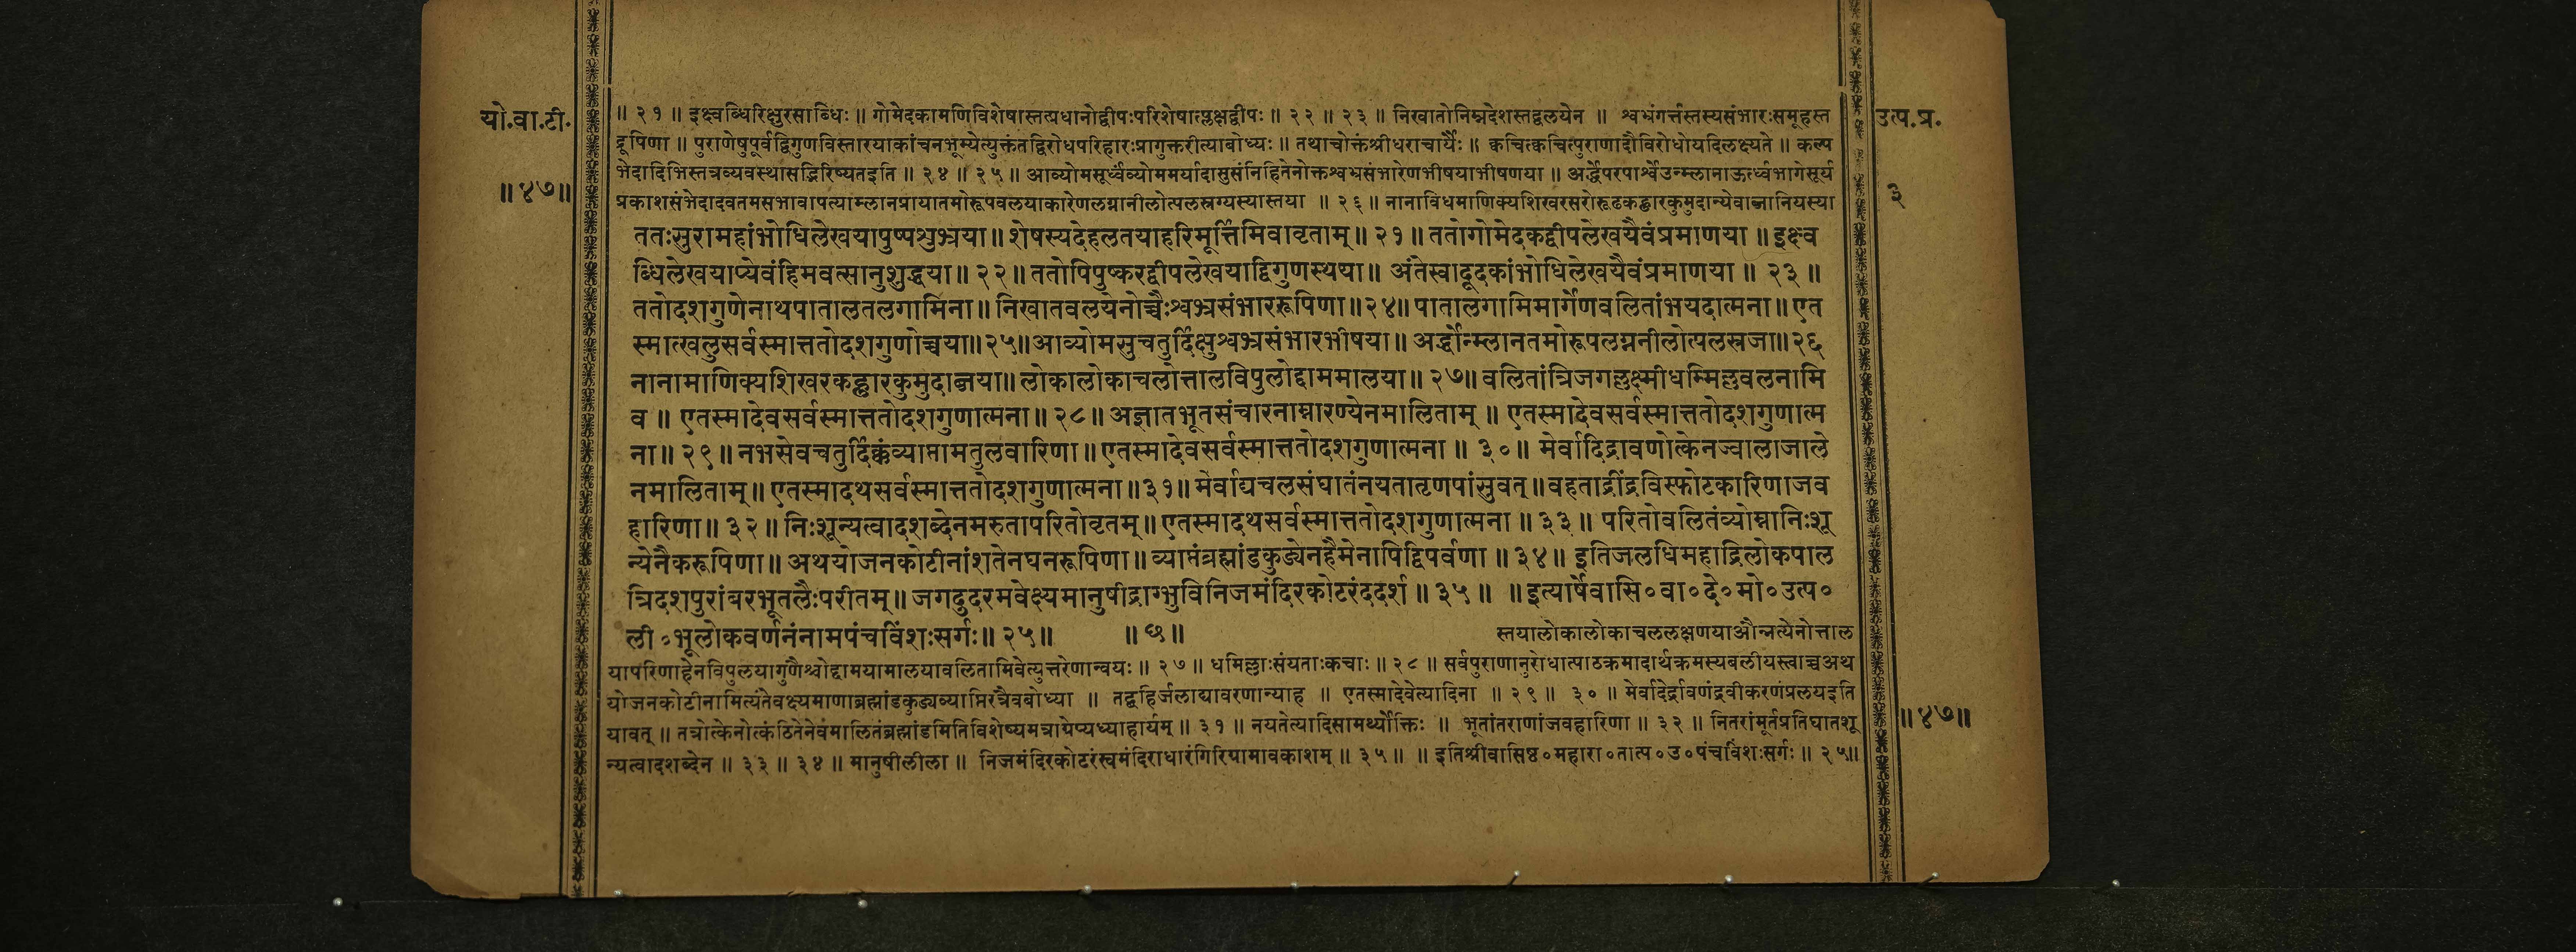 यो.वा.टी.
॥४७॥
॥ २१ ॥ इक्ष्वब्धिरिक्षुरसाब्धिः ॥ गोमेदकामणिविशेषास्तत्प्रधानोद्वीपःपरिशेषात्प्लक्षद्वीपः ॥ २२ ॥ २३ ॥ निखातोनिम्नदेशस्तद्वलयेन ॥ श्वभ्रंगर्त्तस्तस्यसंभारःसमूहस्त
द्रूपिणा ॥ पुराणेषुपूर्वद्विगुणविस्तारयाकांचनभूम्येत्युक्तंतद्विरोधपरिहारःप्रागुक्तरीत्याबोध्यः ॥ तथाचोक्तंश्रीधराचार्यैः ॥ क्वचित्क्वचित्पुराणादौविरोधोयदिलक्ष्यते ॥ कल्प
भेदादिभिस्तत्रव्यवस्थासद्भिरिष्यतइति ॥ २४ ॥ २५ ॥ आव्योमसूर्ध्वंव्योममर्यादासुसंनिहितेनोक्तश्वभ्रसंभारेणभीषयाभीषणया ॥ अर्द्धेपरपार्श्वेउन्म्लानाऊर्ध्वभागेसूर्य
प्रकाशसंभेदादवतमसभावापत्याम्लानप्रायातमोरूपवलयाकारेणलग्नानीलोत्पलस्रग्यस्यास्तया ॥ २६ ॥ नानाविधमाणिक्यशिखरसरोरूढकह्लारकुमुदान्येवाब्जानियस्या
ततःसुरामहांभोधिलेखयापुष्पशुभ्रया॥शेषस्यदेहलतयाहरिमूर्त्तिमिवावृताम्॥ २१ ॥ ततोगोमेदकद्वीपलेखयैवंप्रमाणया ॥ इक्ष्व
ब्धिलेखयाप्येवंहिमवत्सानुशुद्धया॥ २२॥ ततोपिपुष्करद्वीपलेखयाद्विगुणस्थया॥ अंतेस्वादूदकांभोधिलेखयैवंप्रमाणया ॥ २३ ॥
ततोदशगुणेनाथपातालतलगामिना॥ निखातवलयेनोच्चैःश्वभ्रसंभाररूपिणा॥२४॥ पातालगामिमार्गेणवलितांभयदात्मना॥ एत
स्मात्खलुसर्वस्मात्ततोदशगुणोच्चया॥२५॥आव्योमसुचतुर्दिक्षुश्वभ्रसंभारभीषया॥ अर्द्धोन्म्लानतमोरूपलग्ननीलोत्पलस्रजा॥२६
नानामाणिक्यशिखरकह्लारकुमुदाब्जया॥ लोकालोकाचलोत्तालविपुलोद्दाममालया॥ २७॥ वलितांत्रिजगल्लक्ष्मीधम्मिल्लवलनामि
व ॥ एतस्मादेवसर्वस्मात्ततोदशगुणात्मना॥ २८॥ अज्ञातभूतसंचारनाम्नारण्येनमालिताम् ॥ एतस्मादेवसर्वस्मात्ततोदशगुणात्म
ना॥ २९॥ नभसेवचतुर्दिक्कंव्याप्तामतुलवारिणा॥ एतस्मादेवसर्वस्मात्ततोदशगुणात्मना ॥ ३०॥ मेर्वादिद्रावणोत्केनज्वालाजाले
नमालिताम्॥ एतस्मादथसर्वस्मात्ततोदशगुणात्मना॥३१॥ मेर्वाद्यचलसंघातंनयतातृणपांसुवत्॥वहताद्रींद्रविस्फोटकारिणाजव
हारिणा॥ ३२॥ निःशून्यत्वादशब्देनमरुतापरितोवृतम्॥ एतस्मादथसर्वस्मात्ततोदशगुणात्मना ॥ ३३॥ परितोवलितंव्योम्नानिःशू
न्येनैकरूपिणा॥ अथयोजनकोटीनांशतेनघनरूपिणा॥ व्याप्तंब्रह्मांडकुड्येनहैमेनापिद्विपर्वणा ॥ ३४॥ इतिजलधिमहाद्रिलोकपाल
त्रिदशपुरांबरभूतलैःपरीतम्॥ जगदुदरमवेक्ष्यमानुषीद्राग्भुविनिजमंदिरकोटरंददर्श ॥ ३५॥ ॥इत्यार्षेवासि०वा०दे०मो०उत्प०
ली०भूलोकवर्णनंनामपंचविंशःसर्गः॥ २५॥ ॥ छ॥ स्तयालोकालोकाचललक्षणयाऔन्नत्येनोत्ताल
यापरिणाहेनविपुलयागुणैश्चोद्दामयामालयावलितामिवेत्युत्तरेणान्वयः ॥ २७ ॥ धमिल्लाःसंयताःकचाः ॥ २८ ॥ सर्वपुराणानुरोधात्पाठक्रमादार्थक्रमस्यबलीयस्त्वाच्चअथ
योजनकोटीनामित्यंतेवक्ष्यमाणाब्रह्मांडकुड्यव्याप्तिरत्रैवबोध्या ॥ तद्बहिर्जलाद्यावरणान्याह ॥ एतस्मादेवेत्यादिना ॥ २९ ॥ ३० ॥ मेर्वादेर्द्रावणंद्रवीकरणंप्रलयइति
यावत् ॥ तत्रोत्केनोत्कंठितेनेवमालितंब्रह्मांडमितिविशेष्यमत्राग्रेप्यध्याहार्यम् ॥ ३१ ॥ नयतेत्यादिसामर्थ्योक्तिः ॥ भूतांतराणांजवहारिणा ॥ ३२ ॥ नितरांमूर्तप्रतिघातशू
न्यत्वादशब्देन ॥ ३३ ॥ ३४ ॥ मानुषीलीला ॥ निजमंदिरकोटरंस्वमंदिराधारंगिरिग्रामावकाशम् ॥ ३५ ॥ ॥ इतिश्रीवासिष्ठ०महारा०तात्प०उ०पंचविंशःसर्गः ॥ २५॥
उत्प.प्र.
३
॥४७॥